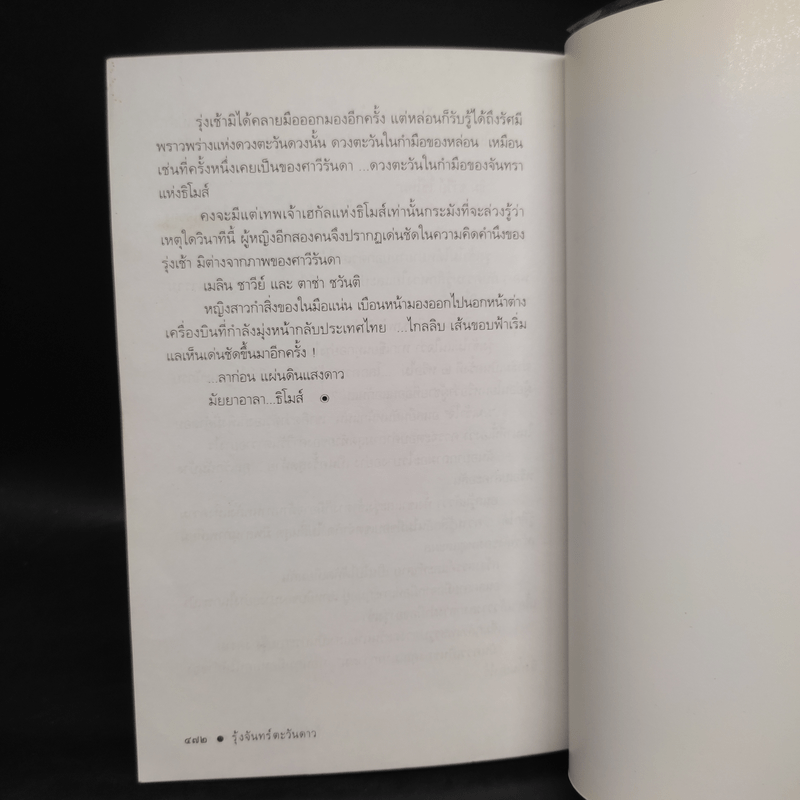 รุ่งเช้ามิได้คลายมือออกมองอีกครั้ง แต่หล่อนก็รับรู้ได้ถึงรัศมี
พราวพร่างแห่งดวงตะวันดวงนั้น ดวงตะวันในกำมือของหล่อน เหมือน
เช่นที่ครั้งหนึ่งเคยเป็นของศาวีรันดา ...ดวงตะวันในกำมือของจันทรา
แห่งธิโมส์
คงจะมีแต่เทพเจ้าเฮกัลแห่งธิโมส์เท่านั้นกระมังที่จะล่วงรู้ว่า
เหตุใดวินาทีนี้ ผู้หญิงอีกสองคนจึงปรากฏเด่นชัดในความคิดคำนึงของ
รุ่งเช้า มิต่างจากภาพของศาวีรันดา
เมลิน ซาวีย์ และ ตาซ่า ชวันติ
หญิงสาวกำสิ่งของในมือแน่น เบือนหน้ามองออกไปนอกหน้าต่าง
เครื่องบินที่กำลังมุ่งหน้ากลับประเทศไทย ...ไกลลิบ เส้นขอบฟ้าเริ่ม
แลเห็นเด่นชัดขึ้นมาอีกครั้ง !
...ลาก่อน แผ่นดินแสงดาว
มัยยาอาลา...ธิโมส์ ◉
๔๗๒ ● รุ้งจันทร์ตะวันดาว